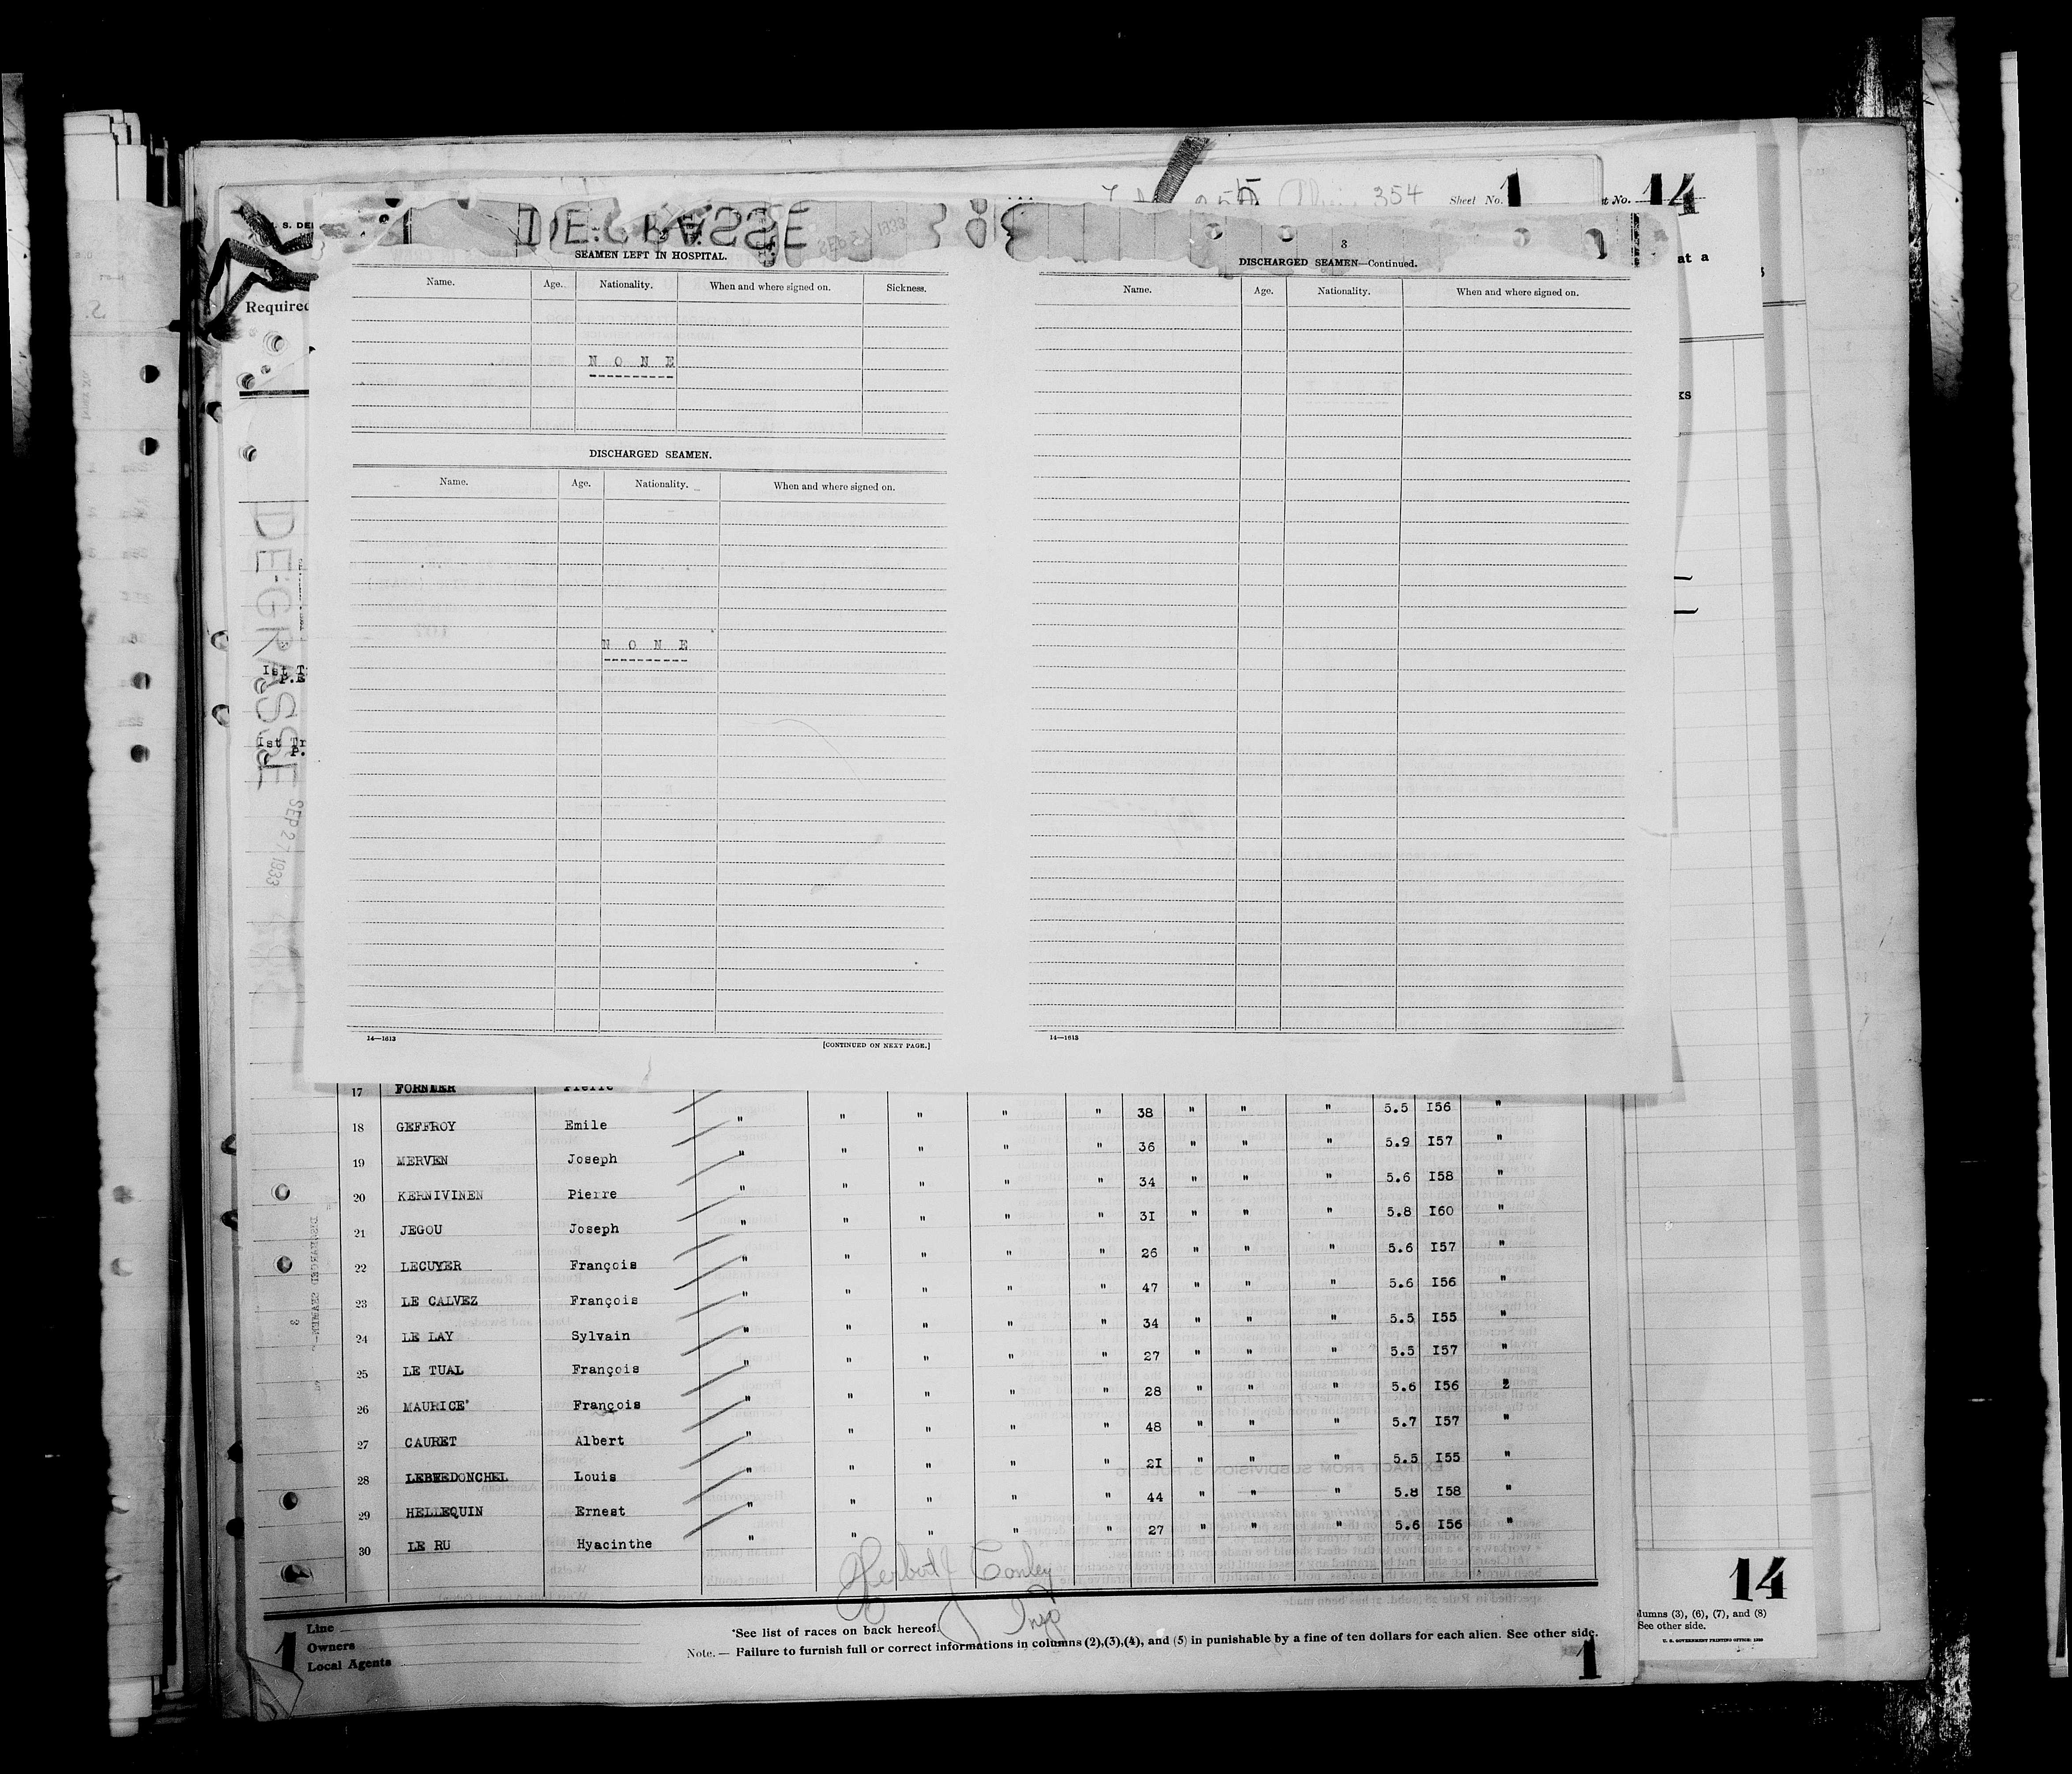 354 Sheet No. 1 t No. 14
S. DE
DE GRASSE SEP 27 1933
at a
Required
ks
SEAMEN LEFT IN HOSPITAL.
Name. Age. Nationality. When and where signed on. Sickness.
N O N E
DISCHARGED SEAMEN.
Name. Age. Nationality. When and where signed on.
N O N E
14—1613 [CONTINUED ON NEXT PAGE.]
3
DISCHARGED SEAMEN—Continued.
Name. Age. Nationality. When and where signed on.
14—1613
DE GRASSE
SEP 27 1933
17 FORNIER Pierre
18 GEFFROY Emile " " " " " 38 " " " 5.5 I56 "
19 MERVEN Joseph " " " " " 36 " " " 5.9 I57 "
20 KERNIVINEN Pierre " " " " " 34 " " " 5.6 I58 "
21 JEGOU Joseph " " " " " 3I " " " 5.8 I60 "
22 LECUYER François " " " " " 26 " " " 5.6 I57 "
23 LE CALVEZ François " " " " " 47 " " " 5.6 I56 "
24 LE LAY Sylvain " " " " " 34 " " " 5.5 I55 "
25 LE TUAL François " " " " " 27 " " " 5.5 I57 "
26 MAURICE' François " " " " " 28 " " " 5.6 I56 2
27 CAURET Albert " " " " " 48 " " " 5.7 I57 "
28 LEBREDONCHEL Louis " " " " " 2I " " " 5.5 I55 "
29 HELLEQUIN Ernest " " " " " 44 " " " 5.8 I58 "
30 LE RU Hyacinthe " " " " " 27 " " " 5.6 I56 "
Herbert J Conley
Insp
Line
Owners
Local Agents
1
*See list of races on back hereof.
Note.— Failure to furnish full or correct informations in columns (2),(3),(4), and (5) in punishable by a fine of ten dollars for each alien. See other side.
1
14
lumns (3), (6), (7), and (8)
See other side.
U. S. GOVERNMENT PRINTING OFFICE: